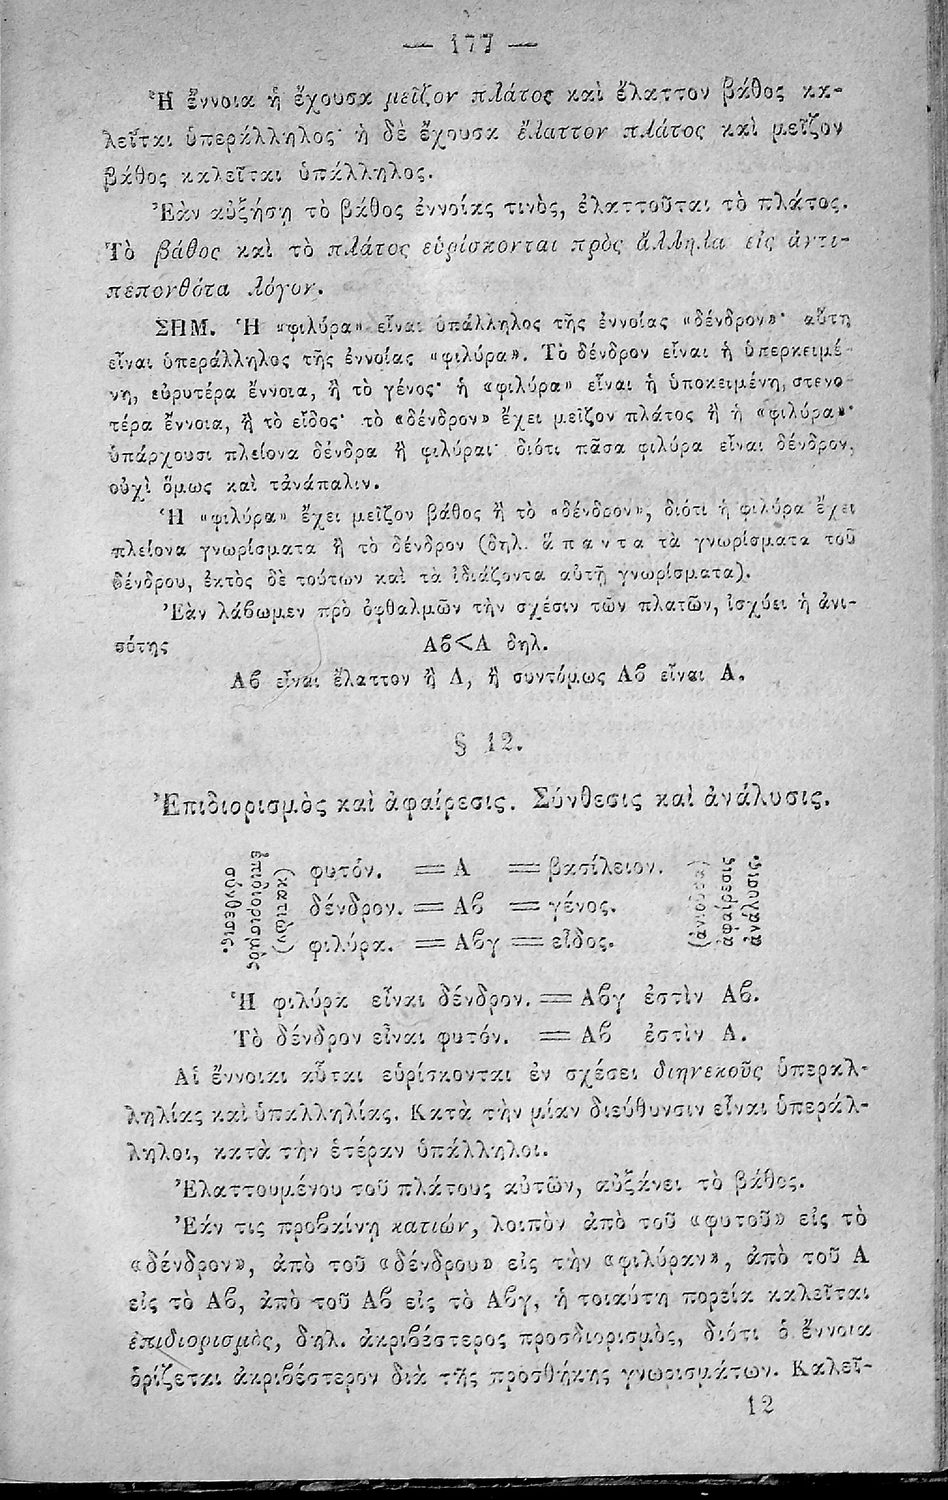 — 177 —
Ἡ ἔννοια ἡ ἔχουσα μεῖζον πλάτος καὶ ἔλαττον βάθος κα-
λεῖται ὑπεράλληλος· ἡ δὲ ἔχουσα ἔλαττον πλάτος καὶ μεῖζον
βάθος καλεῖται ὑπάλληλος.
Ἐὰν αὐξήσῃ τὸ βάθος ἐννοίας τινὸς, ἐλαττοῦται τὸ πλάτος.
Τὸ βάθος καὶ τὸ πλάτος εὑρίσκονται πρὸς ἄλληλα εἰς ἀντι-
πεπονθότα λόγον.
ΣΗΜ. Ἡ «φιλύρα» εἶναι ὑπάλληλος τῆς ἐννοίας «δένδρον»· αὕτη
εἶναι ὑπεράλληλος τῆς ἐννοίας «φιλύρα». Τὸ δένδρον εἶναι ἡ ὑπερκειμέ-
νη, εὐρυτέρα ἔννοια, ἢ τὸ γένος· ἡ «φιλύρα» εἶναι ἡ ὑποκειμένη, στενο-
τέρα ἔννοια, ἢ τὸ εἶδος· τὸ «δένδρον» ἔχει μεῖζον πλάτος ἢ ἡ «φιλύρα»·
ὑπάρχουσι πλείονα δένδρα ἢ φιλύραι· διότι πᾶσα φιλύρα εἶναι δένδρον,
οὐχὶ ὅμως καὶ τἀνάπαλιν.
Ἡ «φιλύρα» ἔχει μεῖζον βάθος ἢ τὸ «δένδρον», διότι ἡ φιλύρα ἔχει
πλείονα γνωρίσματα ἢ τὸ δένδρον (δηλ. ἅπαντα τὰ γνωρίσματα τοῦ
δένδρου, ἐκτὸς δὲ τούτων καὶ τὰ ἰδιάζοντα αὐτῇ γνωρίσματα).
Ἐὰν λάβωμεν πρὸ ὀφθαλμῶν τὴν σχέσιν τῶν πλατῶν, ἰσχύει ἡ ἀνι-
σότης Αϐ<Α δηλ.
Αϐ εἶναι ἔλαττον ἢ Α, ἢ συντόμως Αϐ εἶναι Α.
§ 12.
Ἐπιδιορισμὸς καὶ ἀφαίρεσις. Σύνθεσις καὶ ἀνάλυσις.
σύνθεσις.
ἐπιδιορισμὸς
(κατιὼν)
φυτόν. = Α = βασίλειον.
δένδρον. = Αϐ = γένος.
φιλύρα. = Αϐγ = εἶδος.
(ἀνιοῦσα)
ἀφαίρεσις
ἀνάλυσις.
Ἡ φιλύρα εἶναι δένδρον. = Αϐγ ἐστὶν Αϐ.
Τὸ δένδρον εἶναι φυτόν. = Αϐ ἐστὶν Α.
Αἱ ἔννοιαι αὗται εὑρίσκονται ἐν σχέσει διηνεκοῦς ὑπεραλ-
ληλίας καὶ ὑπαλληλίας. Κατὰ τὴν μίαν διεύθυνσιν εἶναι ὑπεράλ-
ληλοι, κατὰ τὴν ἑτέραν ὑπάλληλοι.
Ἐλαττουμένου τοῦ πλάτους αὐτῶν, αὐξάνει τὸ βάθος.
Ἐάν τις προϐαίνῃ κατιών, λοιπὸν ἀπὸ τοῦ «φυτοῦ» εἰς τὸ
«δένδρον», ἀπὸ τοῦ «δένδρου» εἰς τὴν «φιλύραν», ἀπὸ τοῦ Α
εἰς τὸ Αϐ, ἀπὸ τοῦ Αϐ εἰς τὸ Αϐγ, ἡ τοιαύτη πορεία καλεῖται
ἐπιδιορισμὸς, δηλ. ἀκριϐέστερος προσδιορισμὸς, διότι ὁ ἔννοια
ὁρίζεται ἀκριϐέστερον διὰ τῆς προσθήκης γνωρισμάτων. Καλεῖ-
12